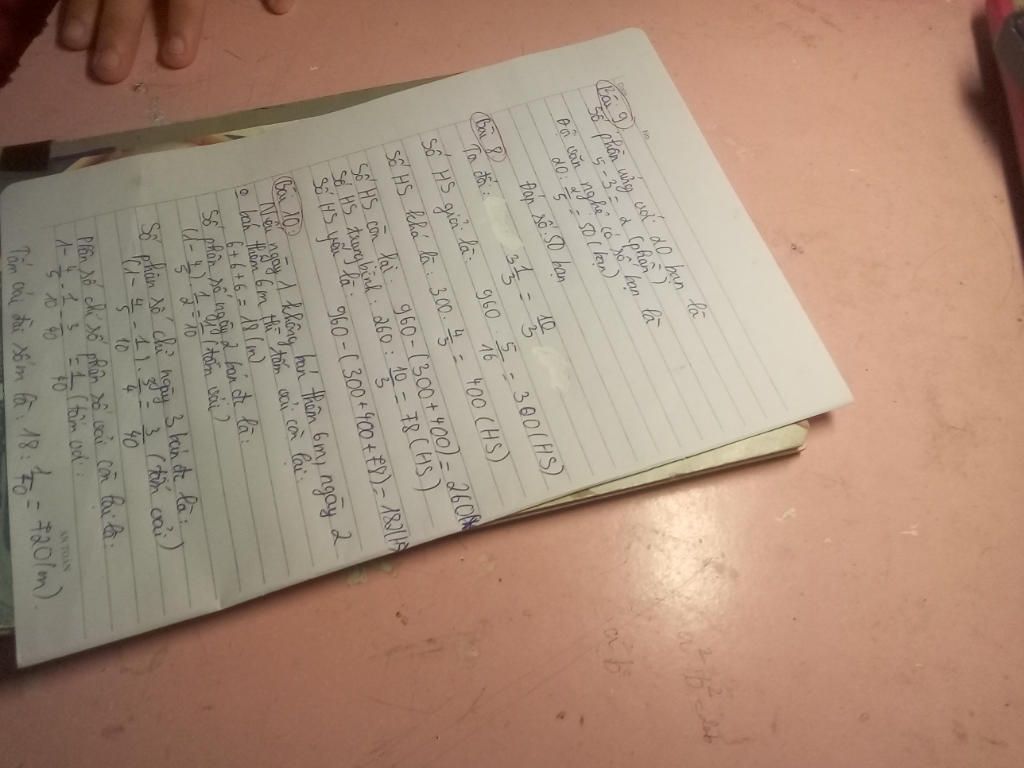 Bài 9
Số phần ứng với 20 bạn là
5 - 3 = 2 (phần)
Đội văn nghệ có số bạn là
20 : 2/5 = 50 (bạn)
Đáp số 50 bạn
Bài 8
Ta đổi: 3 1/3 = 10/3
Số HS giỏi là: 960 . 5/16 = 300 (HS)
Số HS khá là: 300 . 4/3 = 400 (HS)
Số HS còn lại: 960 - (300 + 400) = 260
Số HS trung bình: 260 : 10/3 = 78 (HS)
Số HS yếu là: 960 - (300 + 400 + 78) = 182
Bài 10
Nếu ngày 1 không bán thêm 6m, ngày 2
bán thêm 6m thì tấm vải còn lại:
6 + 6 + 6 = 18 (m)
Số phần số ngày 2 bán đc là:
(1 - 4/5) . 1/2 = 1/10 (tấm vải)
Số phần số chỉ ngày 3 bán đc là:
(1 - 4/5 - 1/10) . 3/4 = 3/40 (tấm vải)
Phân số chỉ số phần số vải còn lại là:
1 - 4/5 - 1/10 - 3/40 = 1/40 (tấm vải)
Tấm vải dài số m là: 18 : 1/40 = 720 (m).
AN TOAN